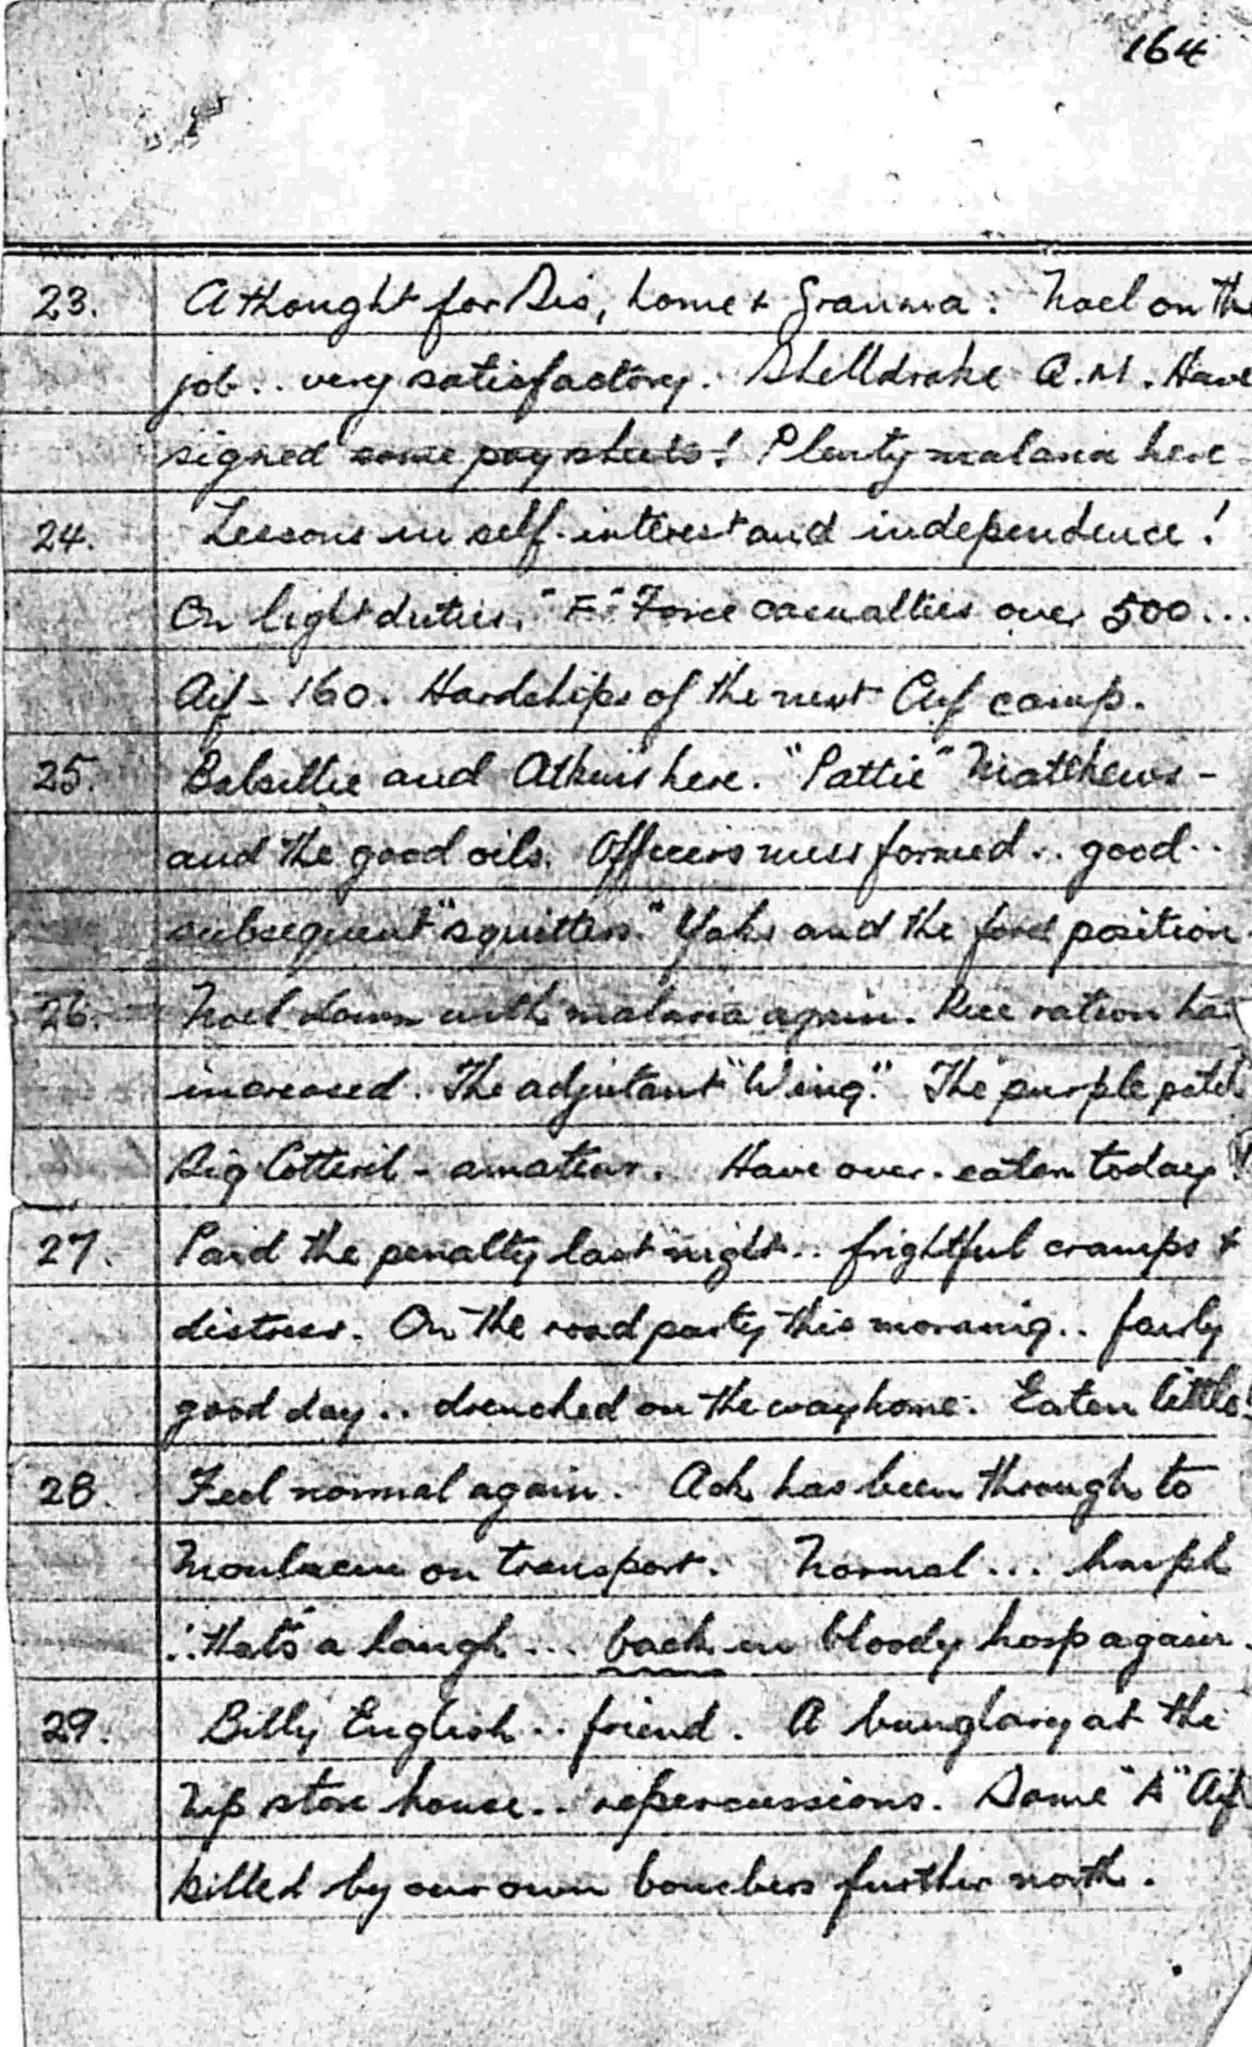 164
23. A thought for Sis, home & Granma. Noel on the
job.. very satisfactory. Shelldrake A.M. Have
signed some pay sheets! Plenty malaria here
24. Lessons in self-interest and independence!
On light duties. "F" Force casualties over 500...
Aif - 160. Hardships of the next Aif camp.
25. and Atkins here. "Pattie" Matthews -
and the good oils. Officers mess formed.. good..
subsequent "squitters." Yaks and the food position.
26. Noel down with malaria again. Rice ration has
increased. The adjutant "Wing." The purple patch
Sig Cotteril - amateur. Have over-eaten today
27. Paid the penalty last night.. frightful cramps &
distress. On the road party this morning.. fairly
good day.. drenched on the way home. Eaten little!
28. Feel normal again. Ack has been through to
Moulmein on transport. Normal... humph
∴ that's a laugh... back in bloody hosp again.
29. Billy English.. friend. A burglary at the
Nip store house.. repercussions. Some "A" Aif
killed by our own bombers further north.